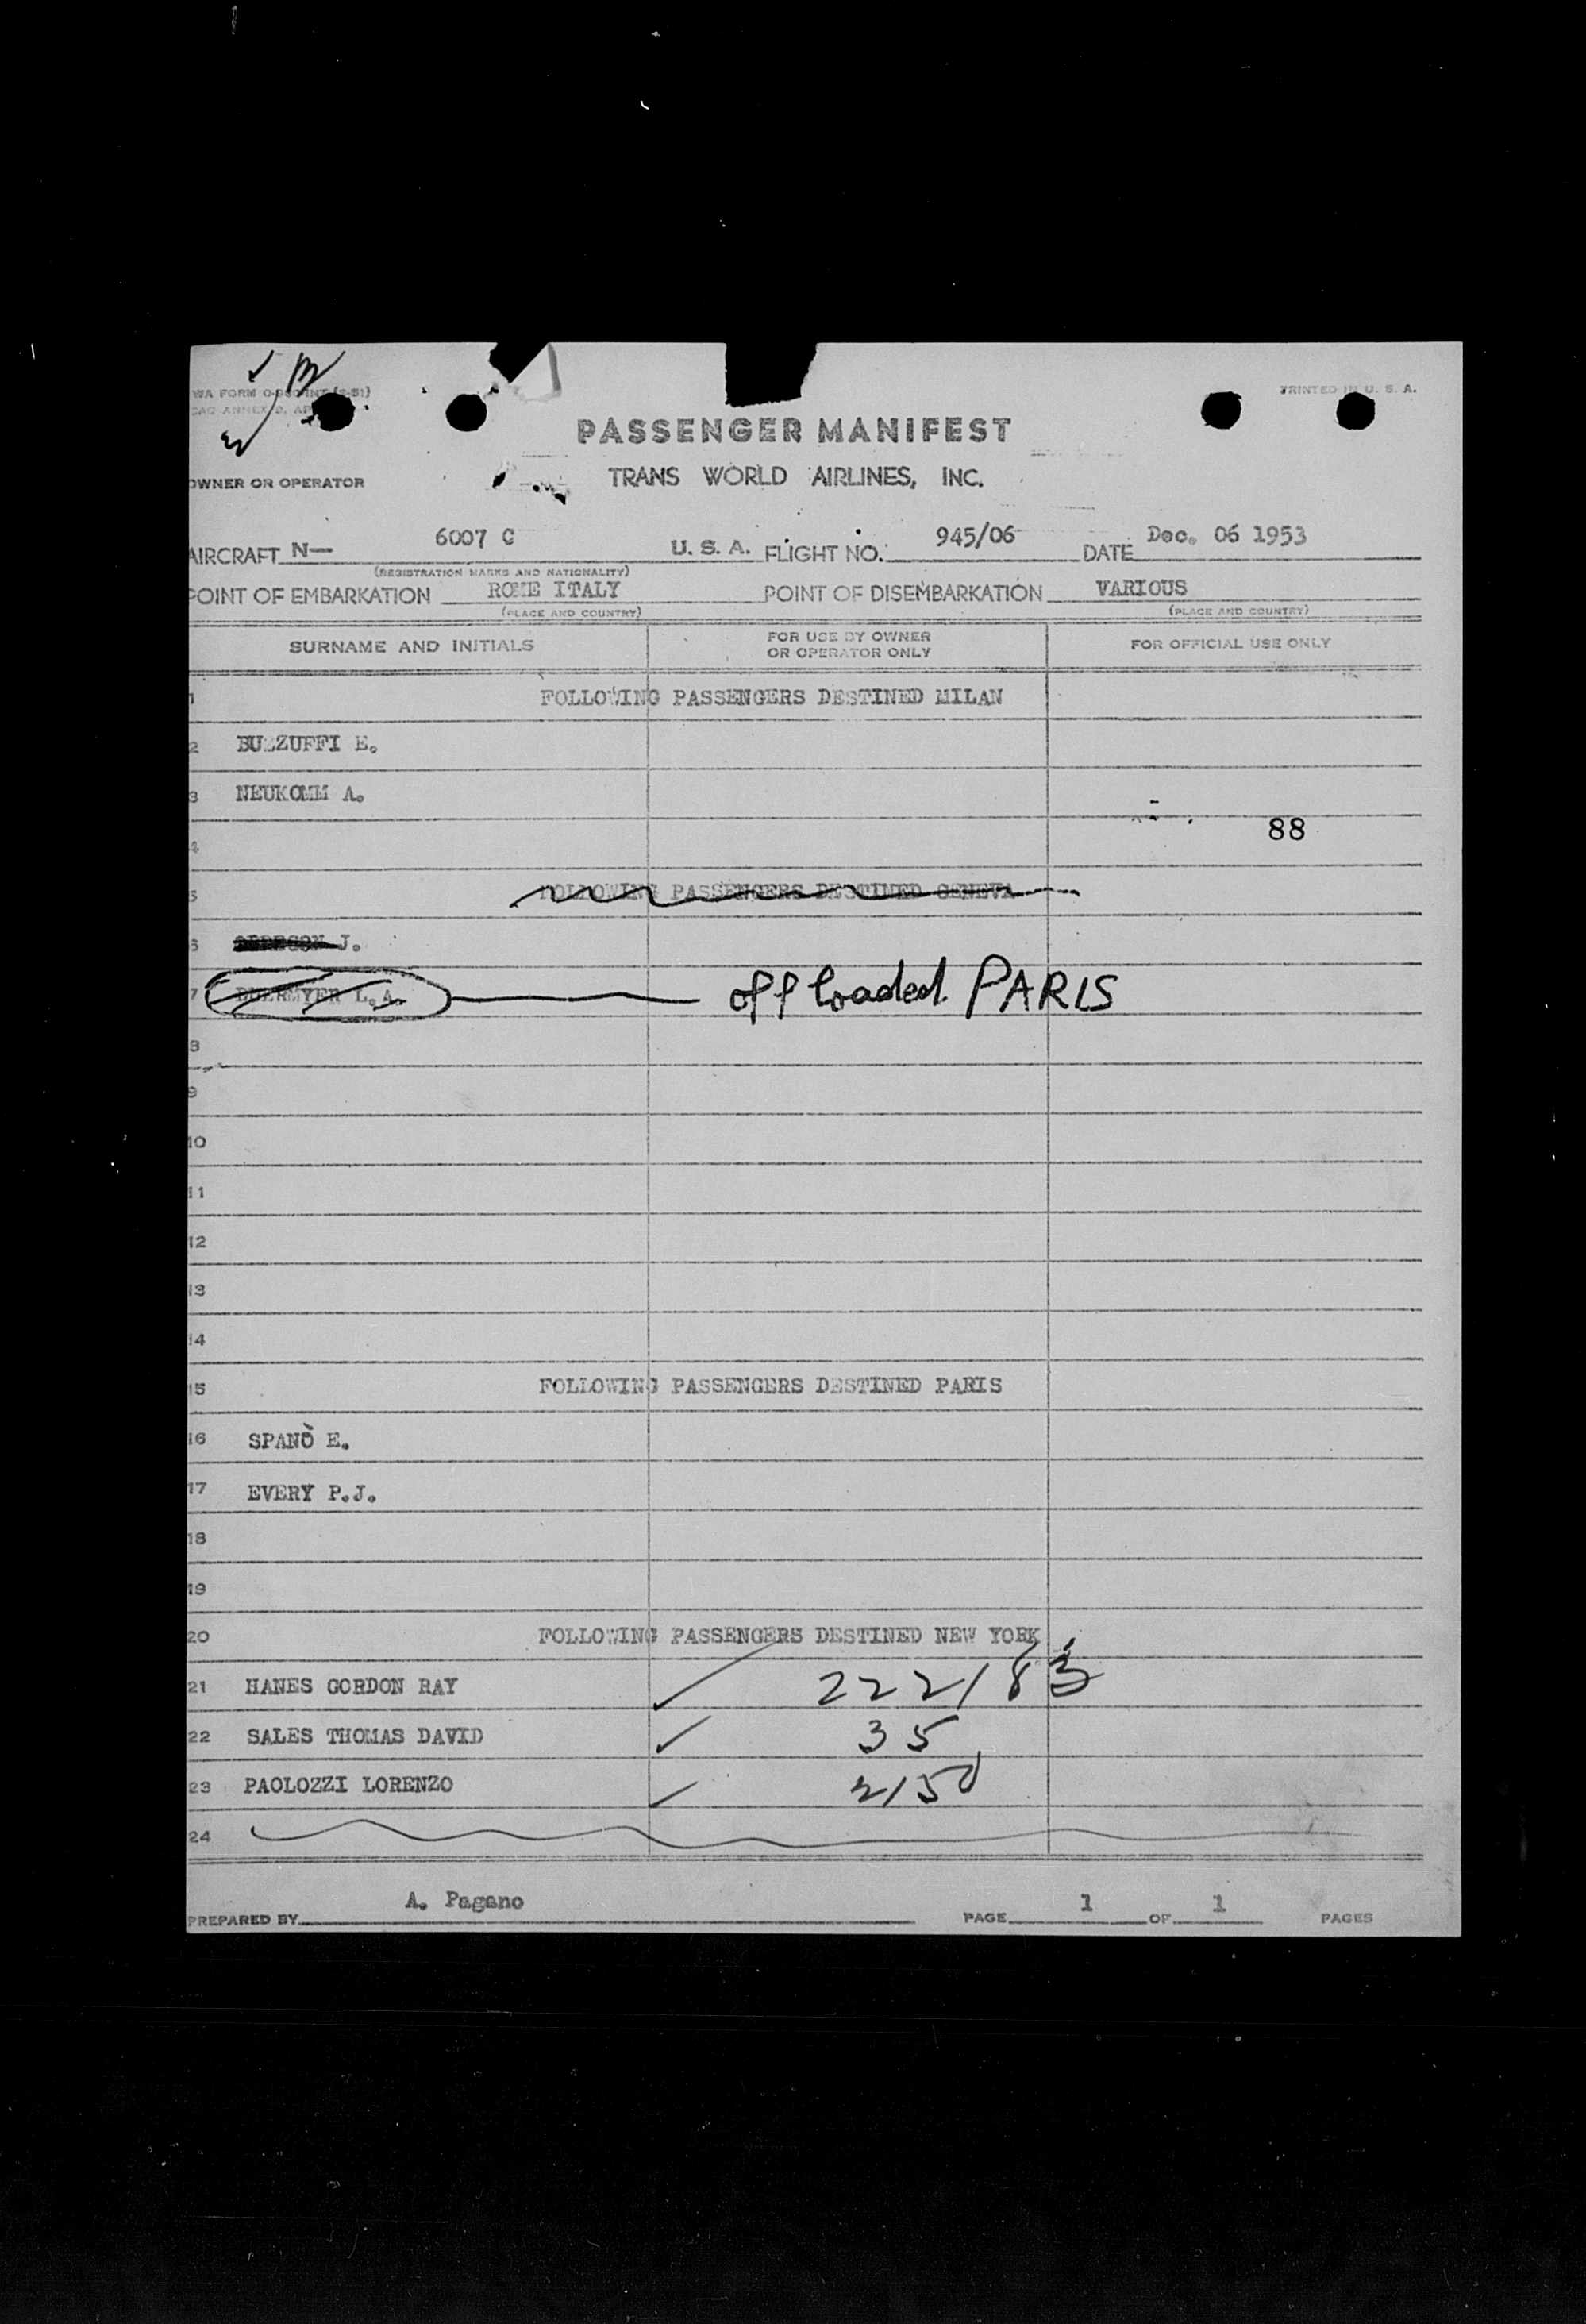 PRINTED IN U. S. A.
PASSENGER MANIFEST
OWNER OR OPERATOR
TRANS WORLD AIRLINES, INC.
AIRCRAFT N— 6007 C U. S. A. FLIGHT NO. 945/06 DATE Dec. 06 1953
(REGISTRATION MARKS AND NATIONALITY)
POINT OF EMBARKATION ROME ITALY POINT OF DISEMBARKATION VARIOUS
(PLACE AND COUNTRY) (PLACE AND COUNTRY)
SURNAME AND INITIALS FOR USE BY OWNER OR OPERATOR ONLY FOR OFFICIAL USE ONLY
1 FOLLOWING PASSENGERS DESTINED MILAN
2 E.
3 NEUKOMM A.
4 88
5 FOLLOWING PASSENGERS DESTINED GENEVA
6 J.
7 L.A. offloaded PARIS
8
9
10
11
12
13
14
15 FOLLOWING PASSENGERS DESTINED PARIS
16 SPANÒ E.
17 EVERY P.J.
18
19
20 FOLLOWING PASSENGERS DESTINED NEW YORK
21 HANES GORDON RAY 222/83
22 SALES THOMAS DAVID 35
23 PAOLOZZI LORENZO
24
PREPARED BY A. Pagano PAGE 1 OF 1 PAGES